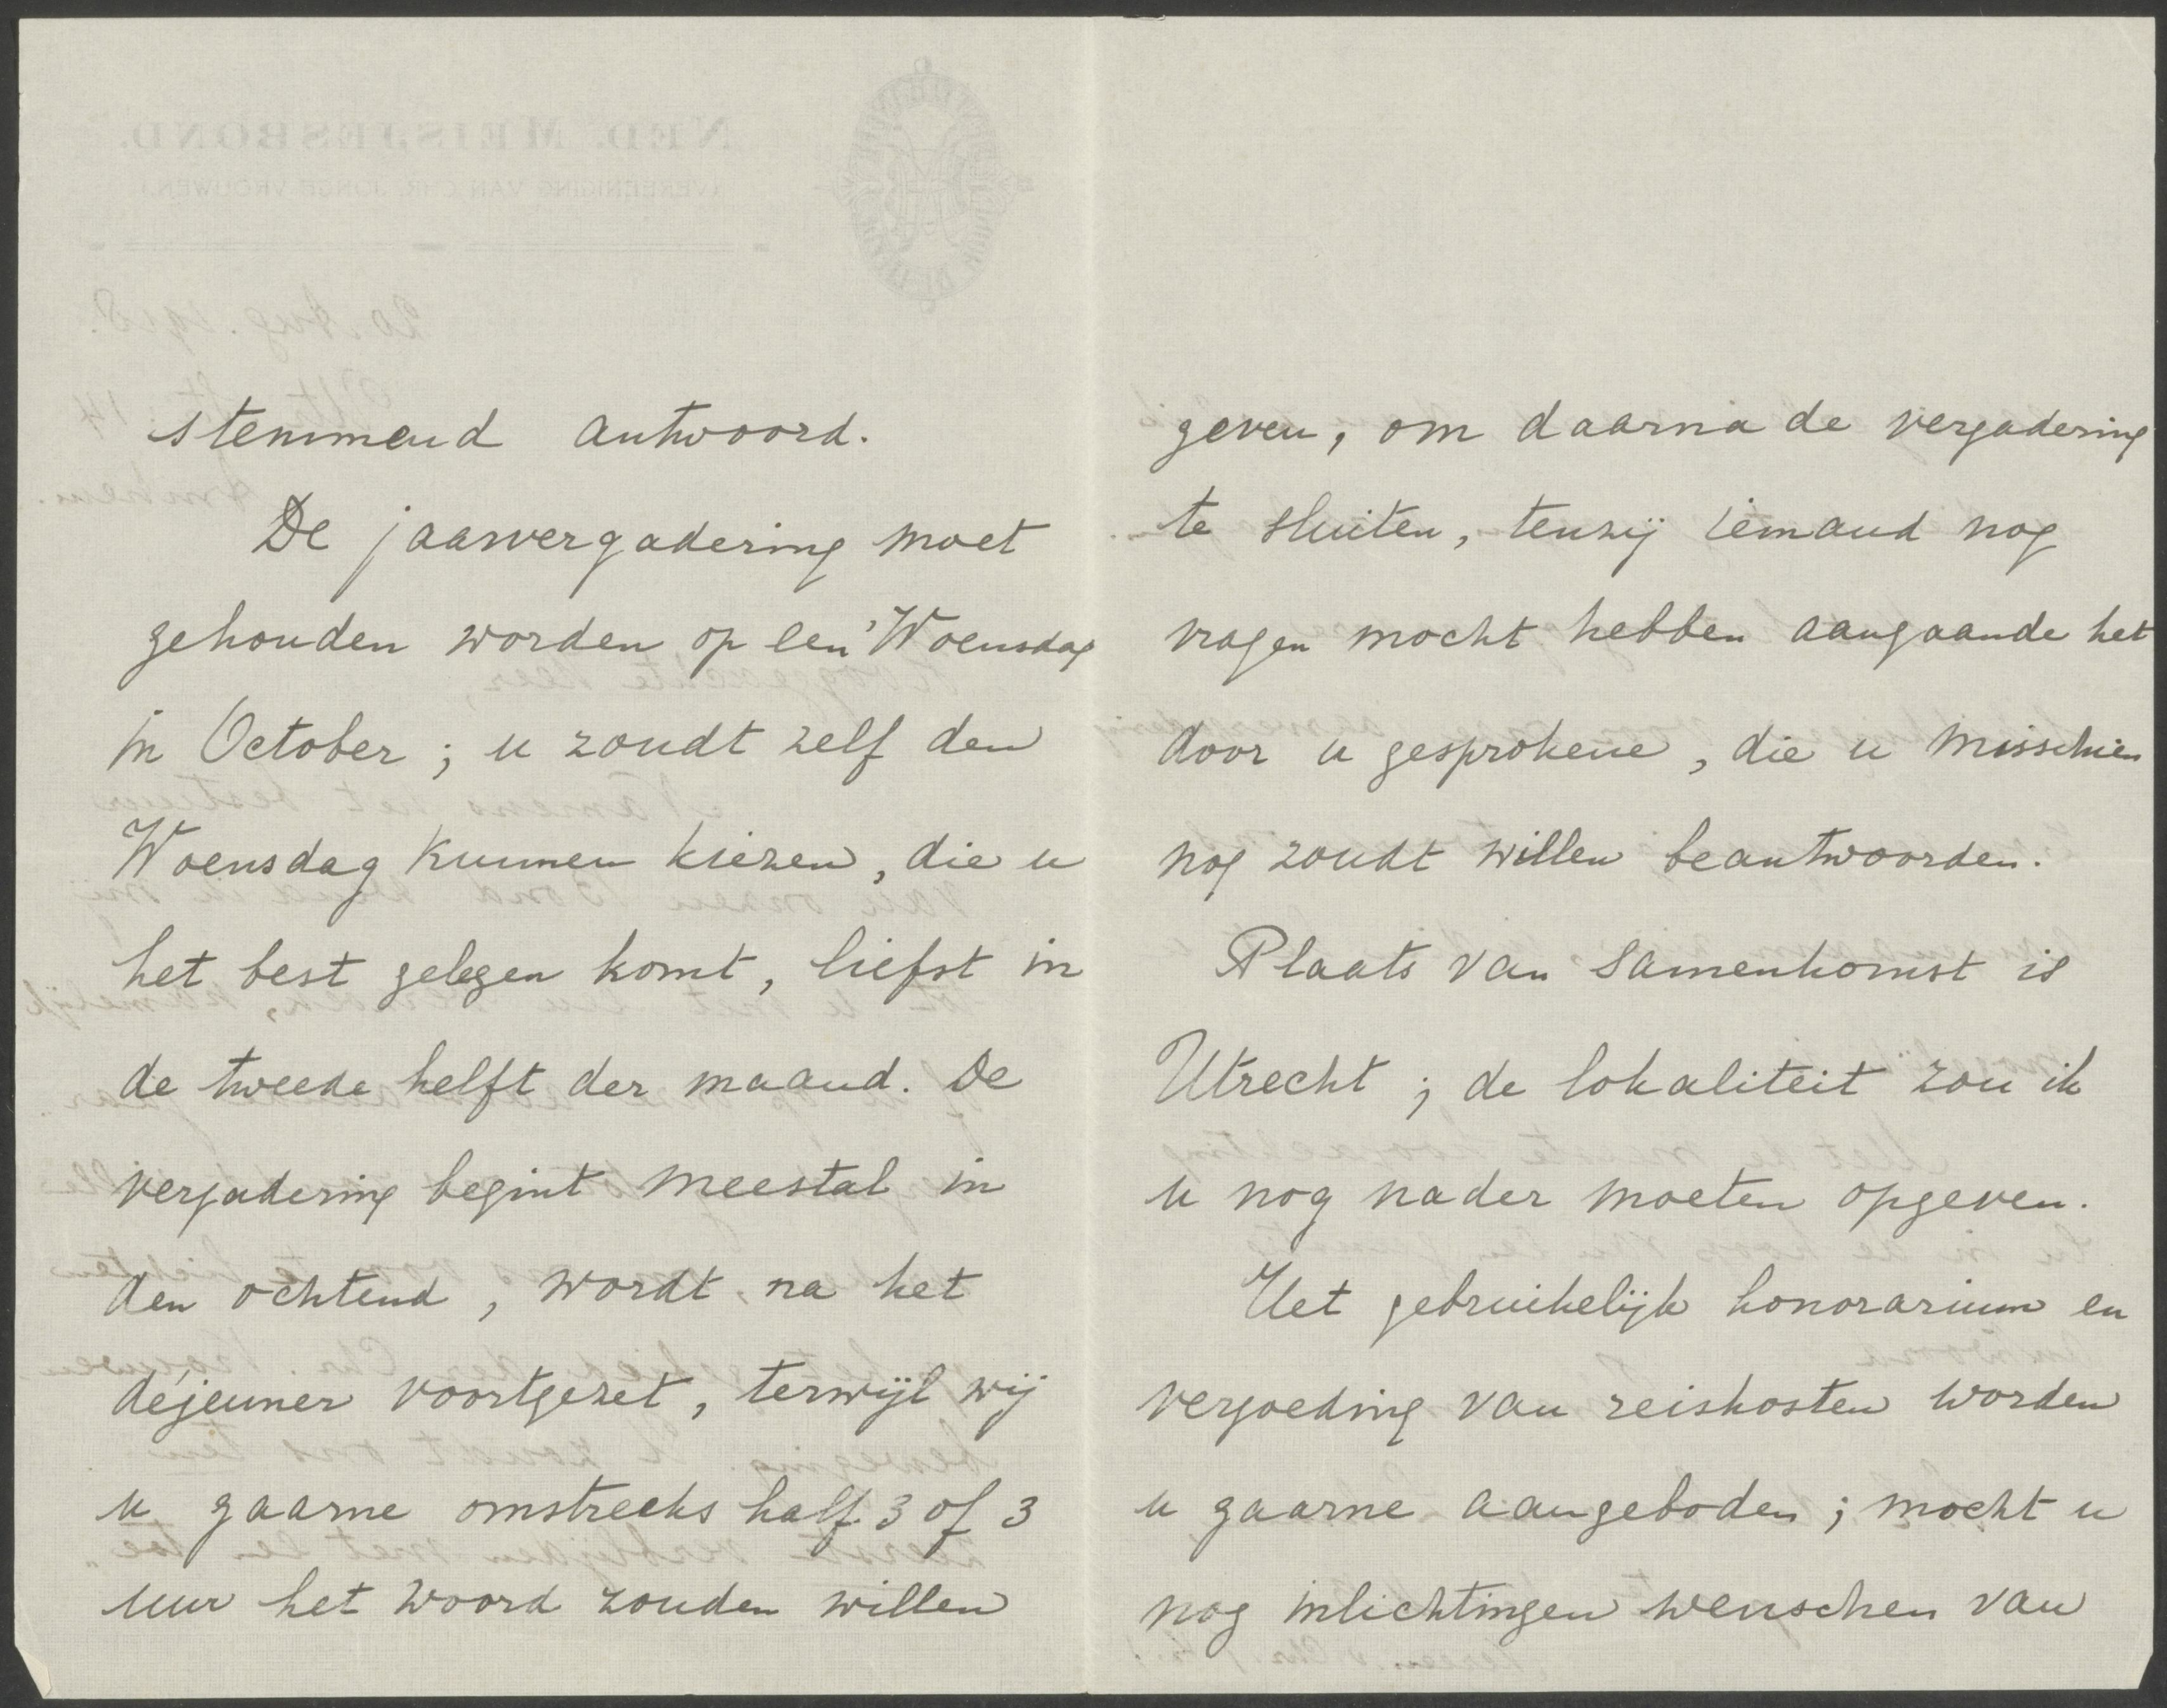 stemmend antwoord.
De jaarvergadering moet
gehouden worden op een Woensdag
in October; u zoudt zelf den
Woensdag kunnen kiezen, die u
het best gelegen komt, liefst in
de tweede helft der maand. De
vergadering begint meestal in
den ochtend, wordt na het
déjeuner voortgezet, terwijl wij
u gaarne omstreeks half 3 of 3
uur het woord zouden willen
geven, om daarna de vergadering
te sluiten, tenzij iemand nog
vragen mocht hebben aangaande het
door u gesprokene, die u misschien
nog zoudt willen beantwoorden.
Plaats van samenkomst is
Utrecht; de lokaliteit zou ik
u nog nader moeten opgeven.
Het gebruikelijk honorarium en
vergoeding van reiskosten worden
u gaarne aangeboden; mocht u
nog inlichtingen wenschen van